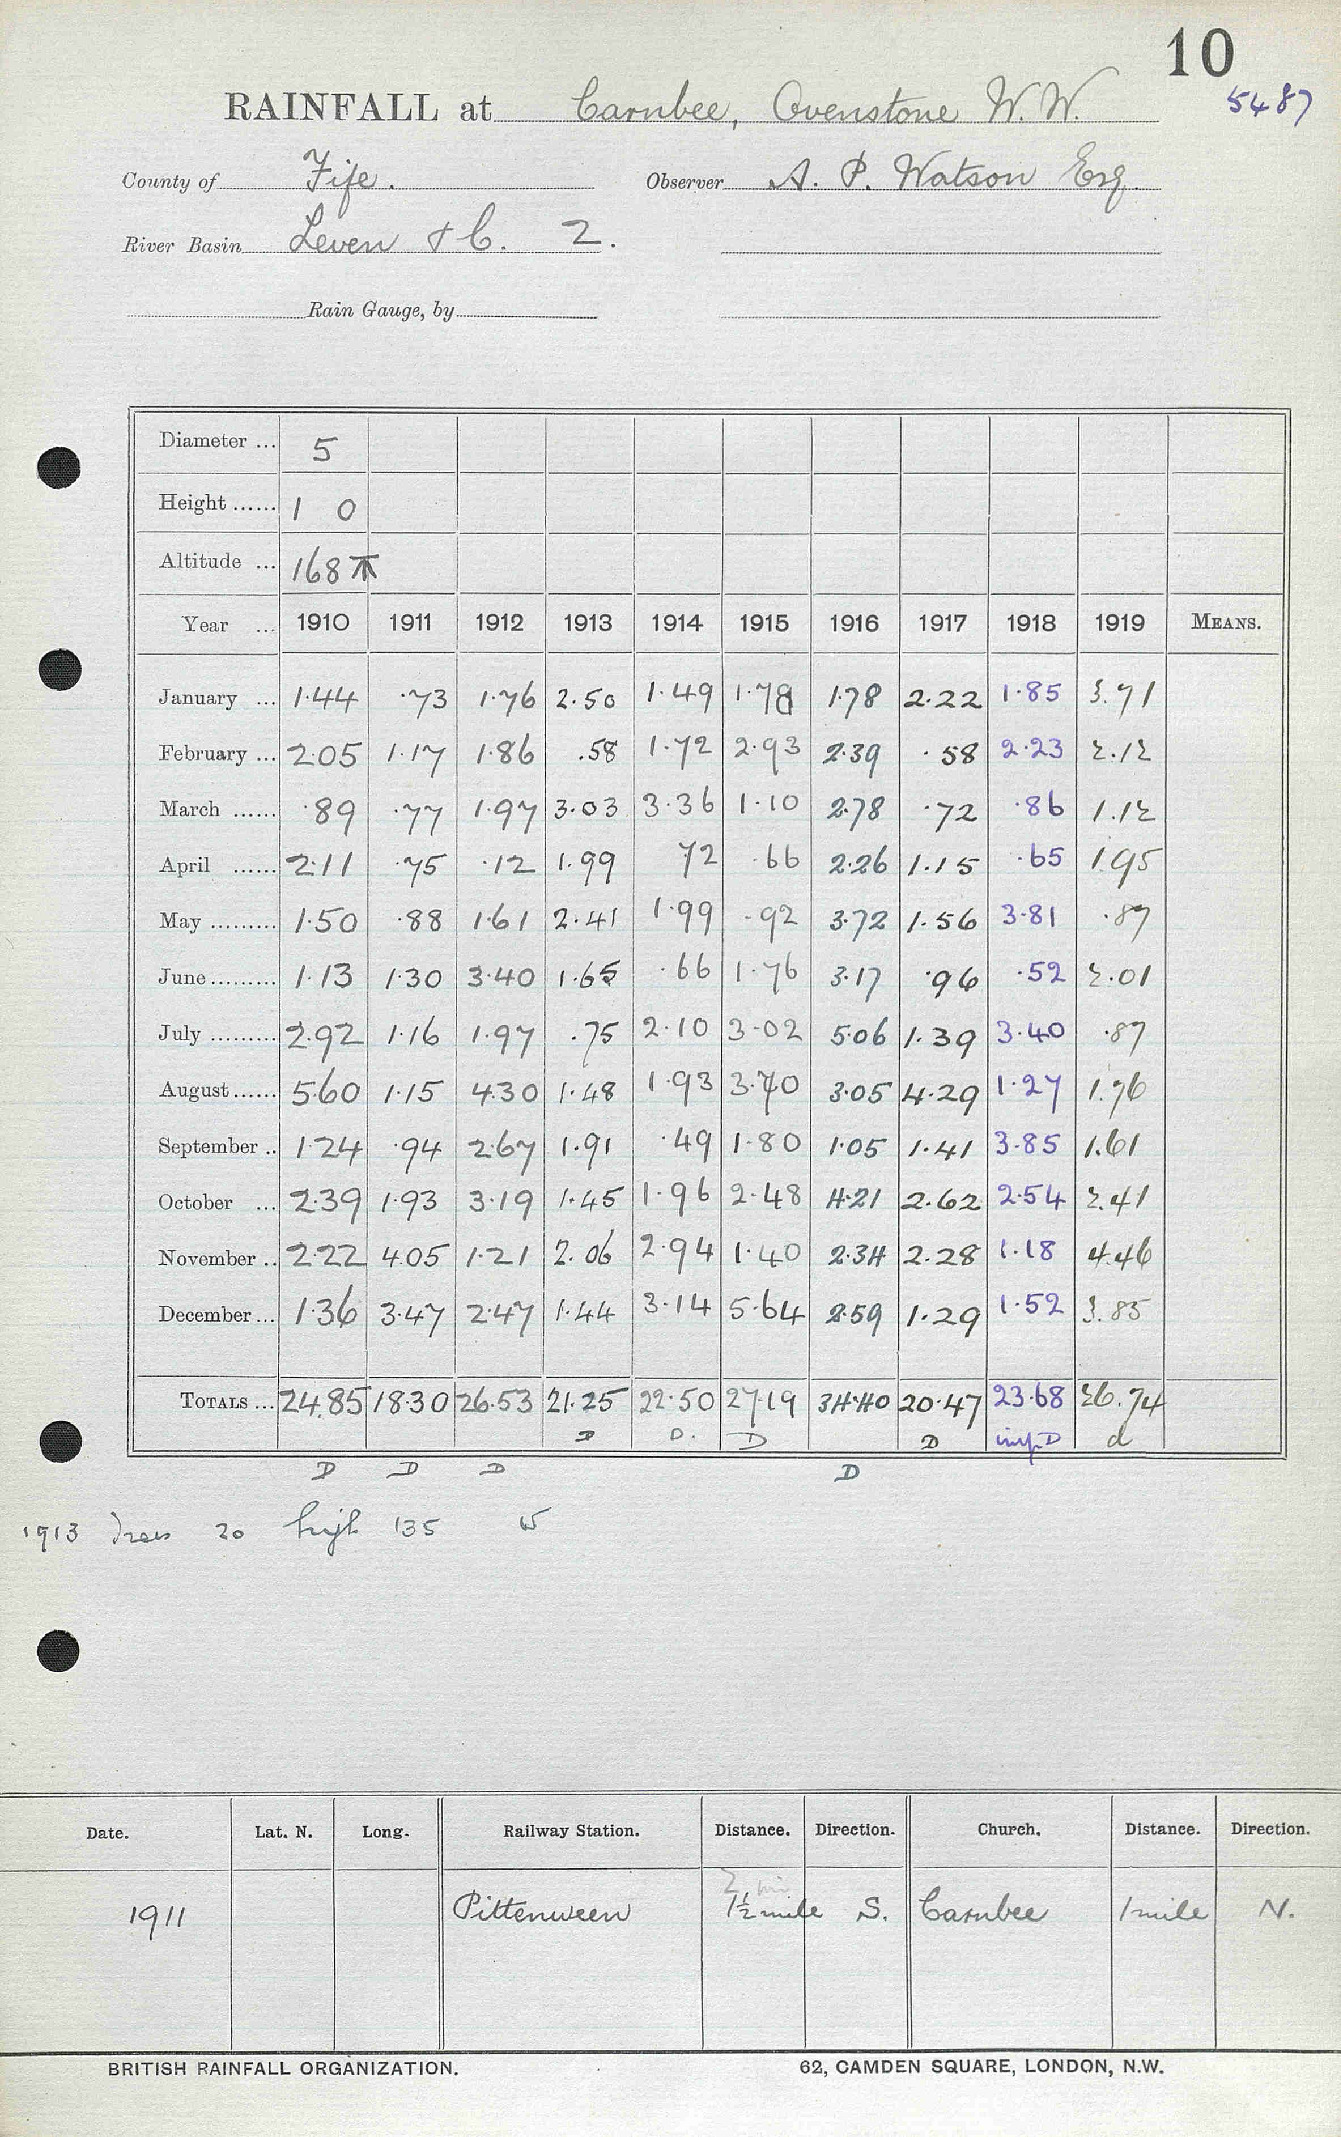 10
5487
RAINFALL at Carnbee, Ovenstone W.W.
County of Fife. Observer A. P. Watson Esq
River Basin Leven & C. 2.
Rain Gauge, by
Diameter ... 5
Height ...... 1 0
Altitude ... 168
Year ... 1910 1911 1912 1913 1914 1915 1916 1917 1918 1919 MEANS.
January ... 1.44 .73 1.76 2.50 1.49 1.78 1.78 2.22 1.85 3.71
February ... 2.05 1.17 1.86 .58 1.72 2.93 2.39 .58 2.23 2.12
March ...... .89 .77 1.97 3.03 3.36 1.10 2.78 .72 .86 1.12
April ...... 2.11 .75 .12 1.99 72 .66 2.26 1.15 .65 1.95
May ......... 1.50 .88 1.61 2.41 1.99 .92 3.72 1.56 3.81 .87
June ......... 1.13 1.30 3.40 1.65 .66 1.76 3.17 .96 .52 2.01
July ......... 2.92 1.16 1.97 .75 2.10 3.02 5.06 1.39 3.40 .87
August ...... 5.60 1.15 4.30 1.48 1.93 3.70 3.05 4.29 1.27 1.76
September .. 1.24 .94 2.67 1.91 .49 1.80 1.05 1.41 3.85 1.61
October ... 2.39 1.93 3.19 1.45 1.96 2.48 4.21 2.62 2.54 2.41
November .. 2.22 4.05 1.21 2.06 2.94 1.40 2.34 2.28 1.18 4.46
December ... 1.36 3.47 2.47 1.44 3.14 5.64 2.59 1.29 1.52 3.85
TOTALS ... 24.85 18.30 26.53 21.25 22.50 27.19 34.40 20.47 23.68 26.74
D D. D D imp D d
D D D D
1913 Trees 20 high 135 W
Date. Lat. N. Long. Railway Station. Distance. Direction. Church. Distance. Direction.
2 mi
1911 Pittenween 1½ mile S. Carnbee 1 mile N.
BRITISH RAINFALL ORGANIZATION. 62, CAMDEN SQUARE, LONDON, N.W.